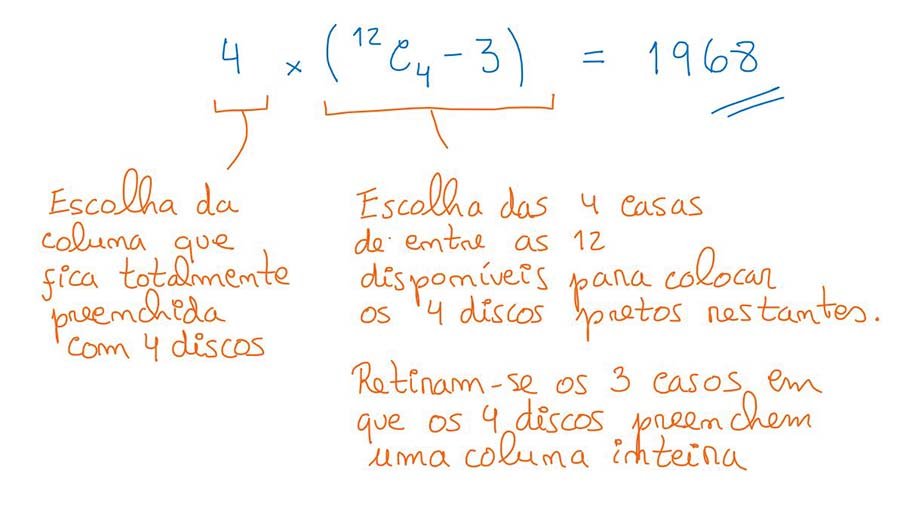 4 × (¹²C₄ − 3) = 1968
Escolha da
coluna que
fica totalmente
preenchida
com 4 discos
Escolha das 4 casas
de entre as 12
disponíveis para colocar
os 4 discos pretos restantes.
Retiram-se os 3 casos em
que os 4 discos preenchem
uma coluna inteira